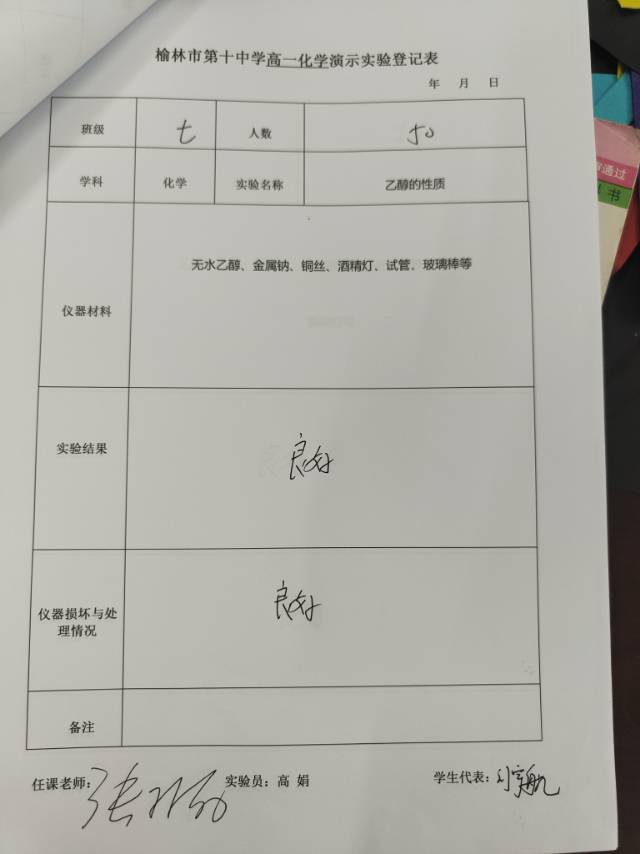 榆林市第十中学高一化学演示实验登记表
年 月 日
班级 七 人数 50
学科 化学 实验名称 乙醇的性质
仪器材料 无水乙醇、金属钠、铜丝、酒精灯、试管、玻璃棒等
实验结果 良好
仪器损坏与处
理情况 良好
备注
任课老师: 张 实验员：高 娟 学生代表: 刘宇航
通过
书